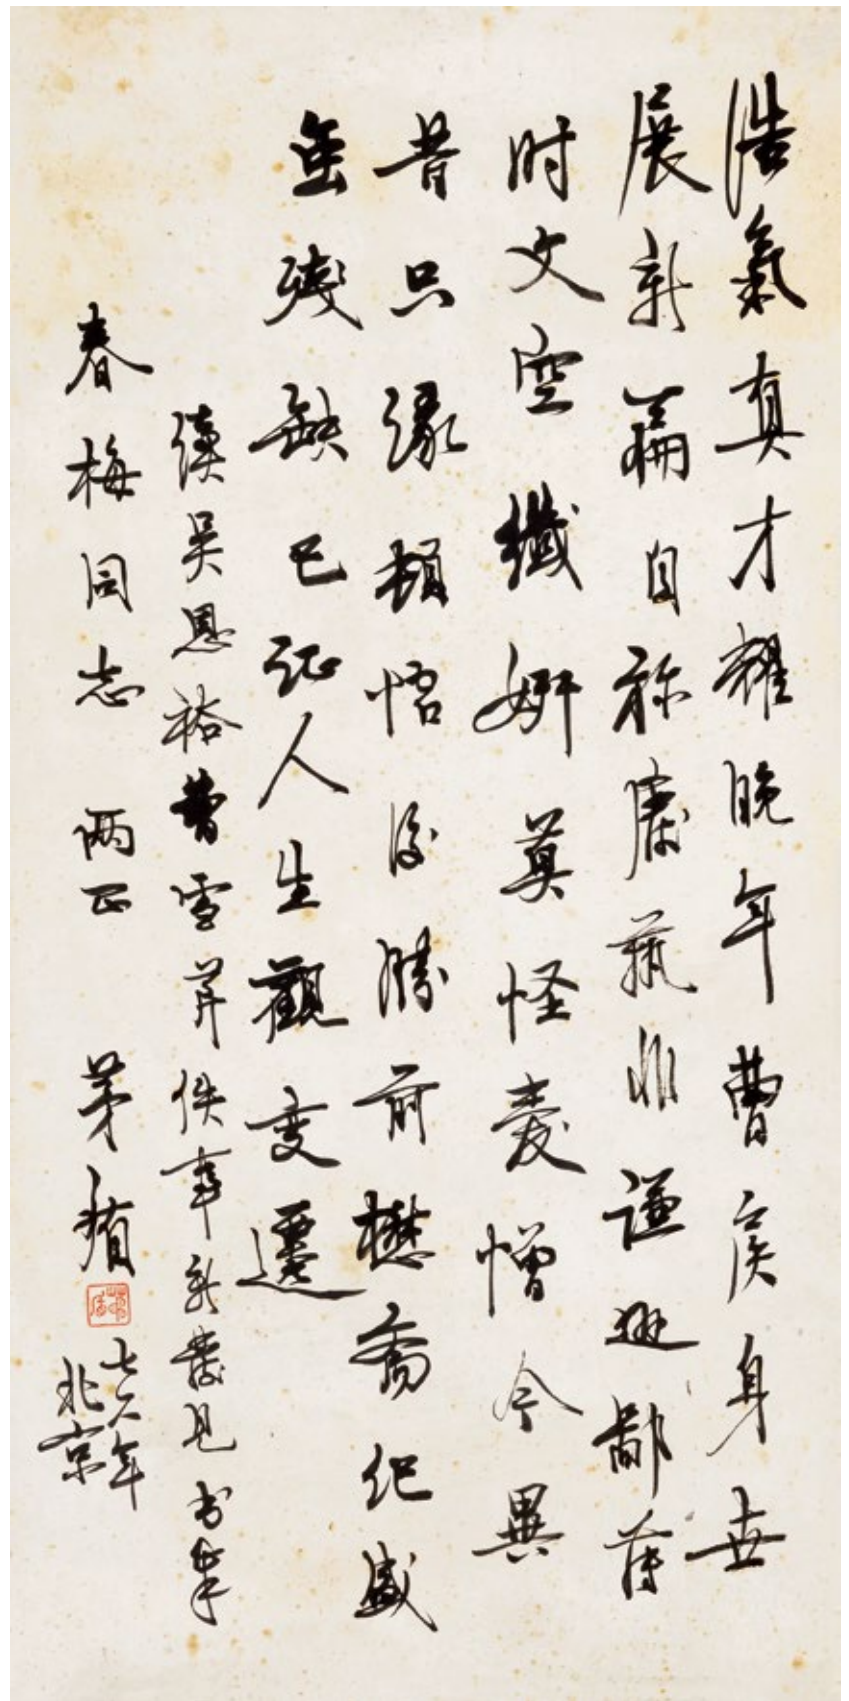 浩氣真才耀晚年曹侯身世
展新篇自称廢蓺非謙遜鄙薄
时文空纖妍莫怪愛憎今異
昔只缘頓悟後勝前懋斋纪盛
虽残缺已证人生觀变遷
读吴恩裕曹雪芹佚事新發见书奉
春梅同志 两正 茅盾
七六年
北京